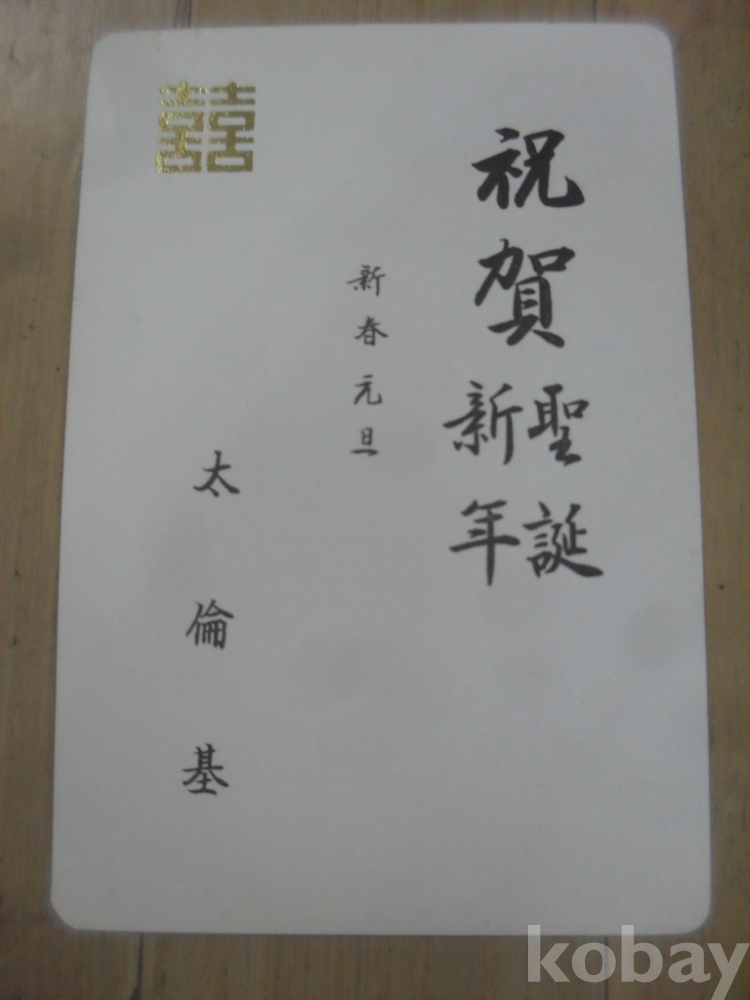 祝賀聖誕
新年
新春元旦
太倫基
囍
kobay